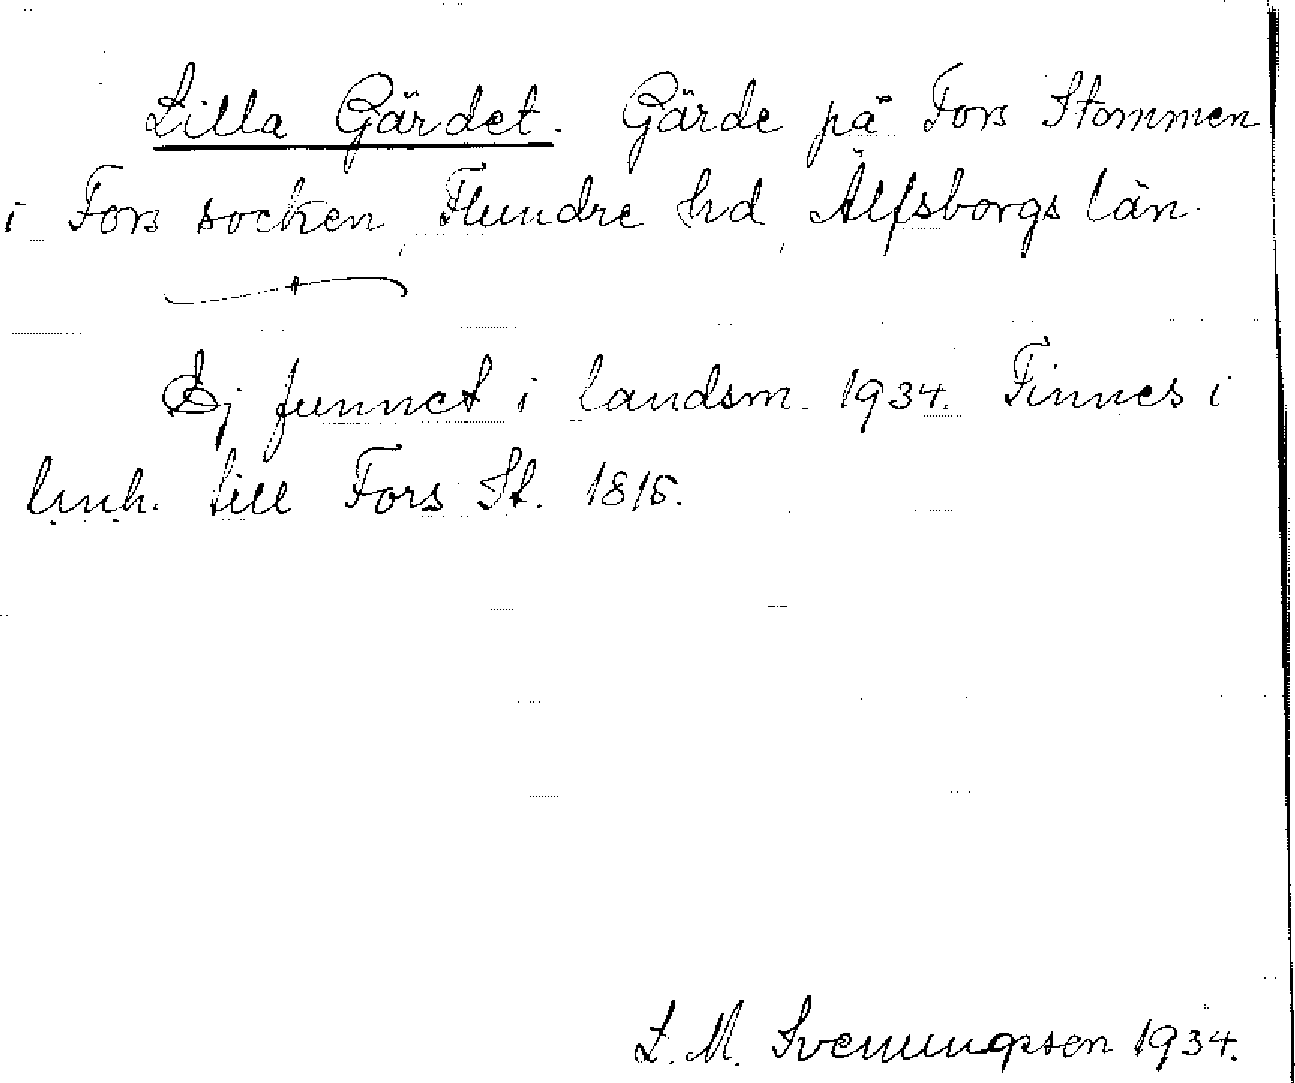 Lilla Gärdet. Gärde på Fors Stommen
i Fors socken, Flundre hd, Älfsborgs län.
Ej funnet i landsm. 1934. Finnes i
till Fors St. 1815.
L. M. Svenungsson 1934.